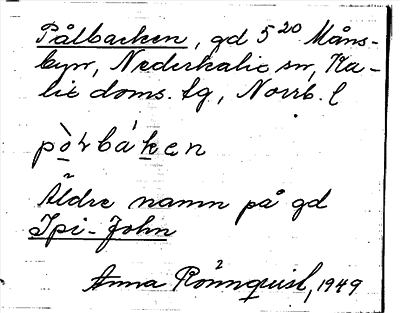 Pålbacken, gd 5²⁰ Måns-
byn, Nederkalix sn, Ka-
lix doms. tg, Norrb. l
Äldre namn på gd
Spi-John
Anna Rönnquist, 1949